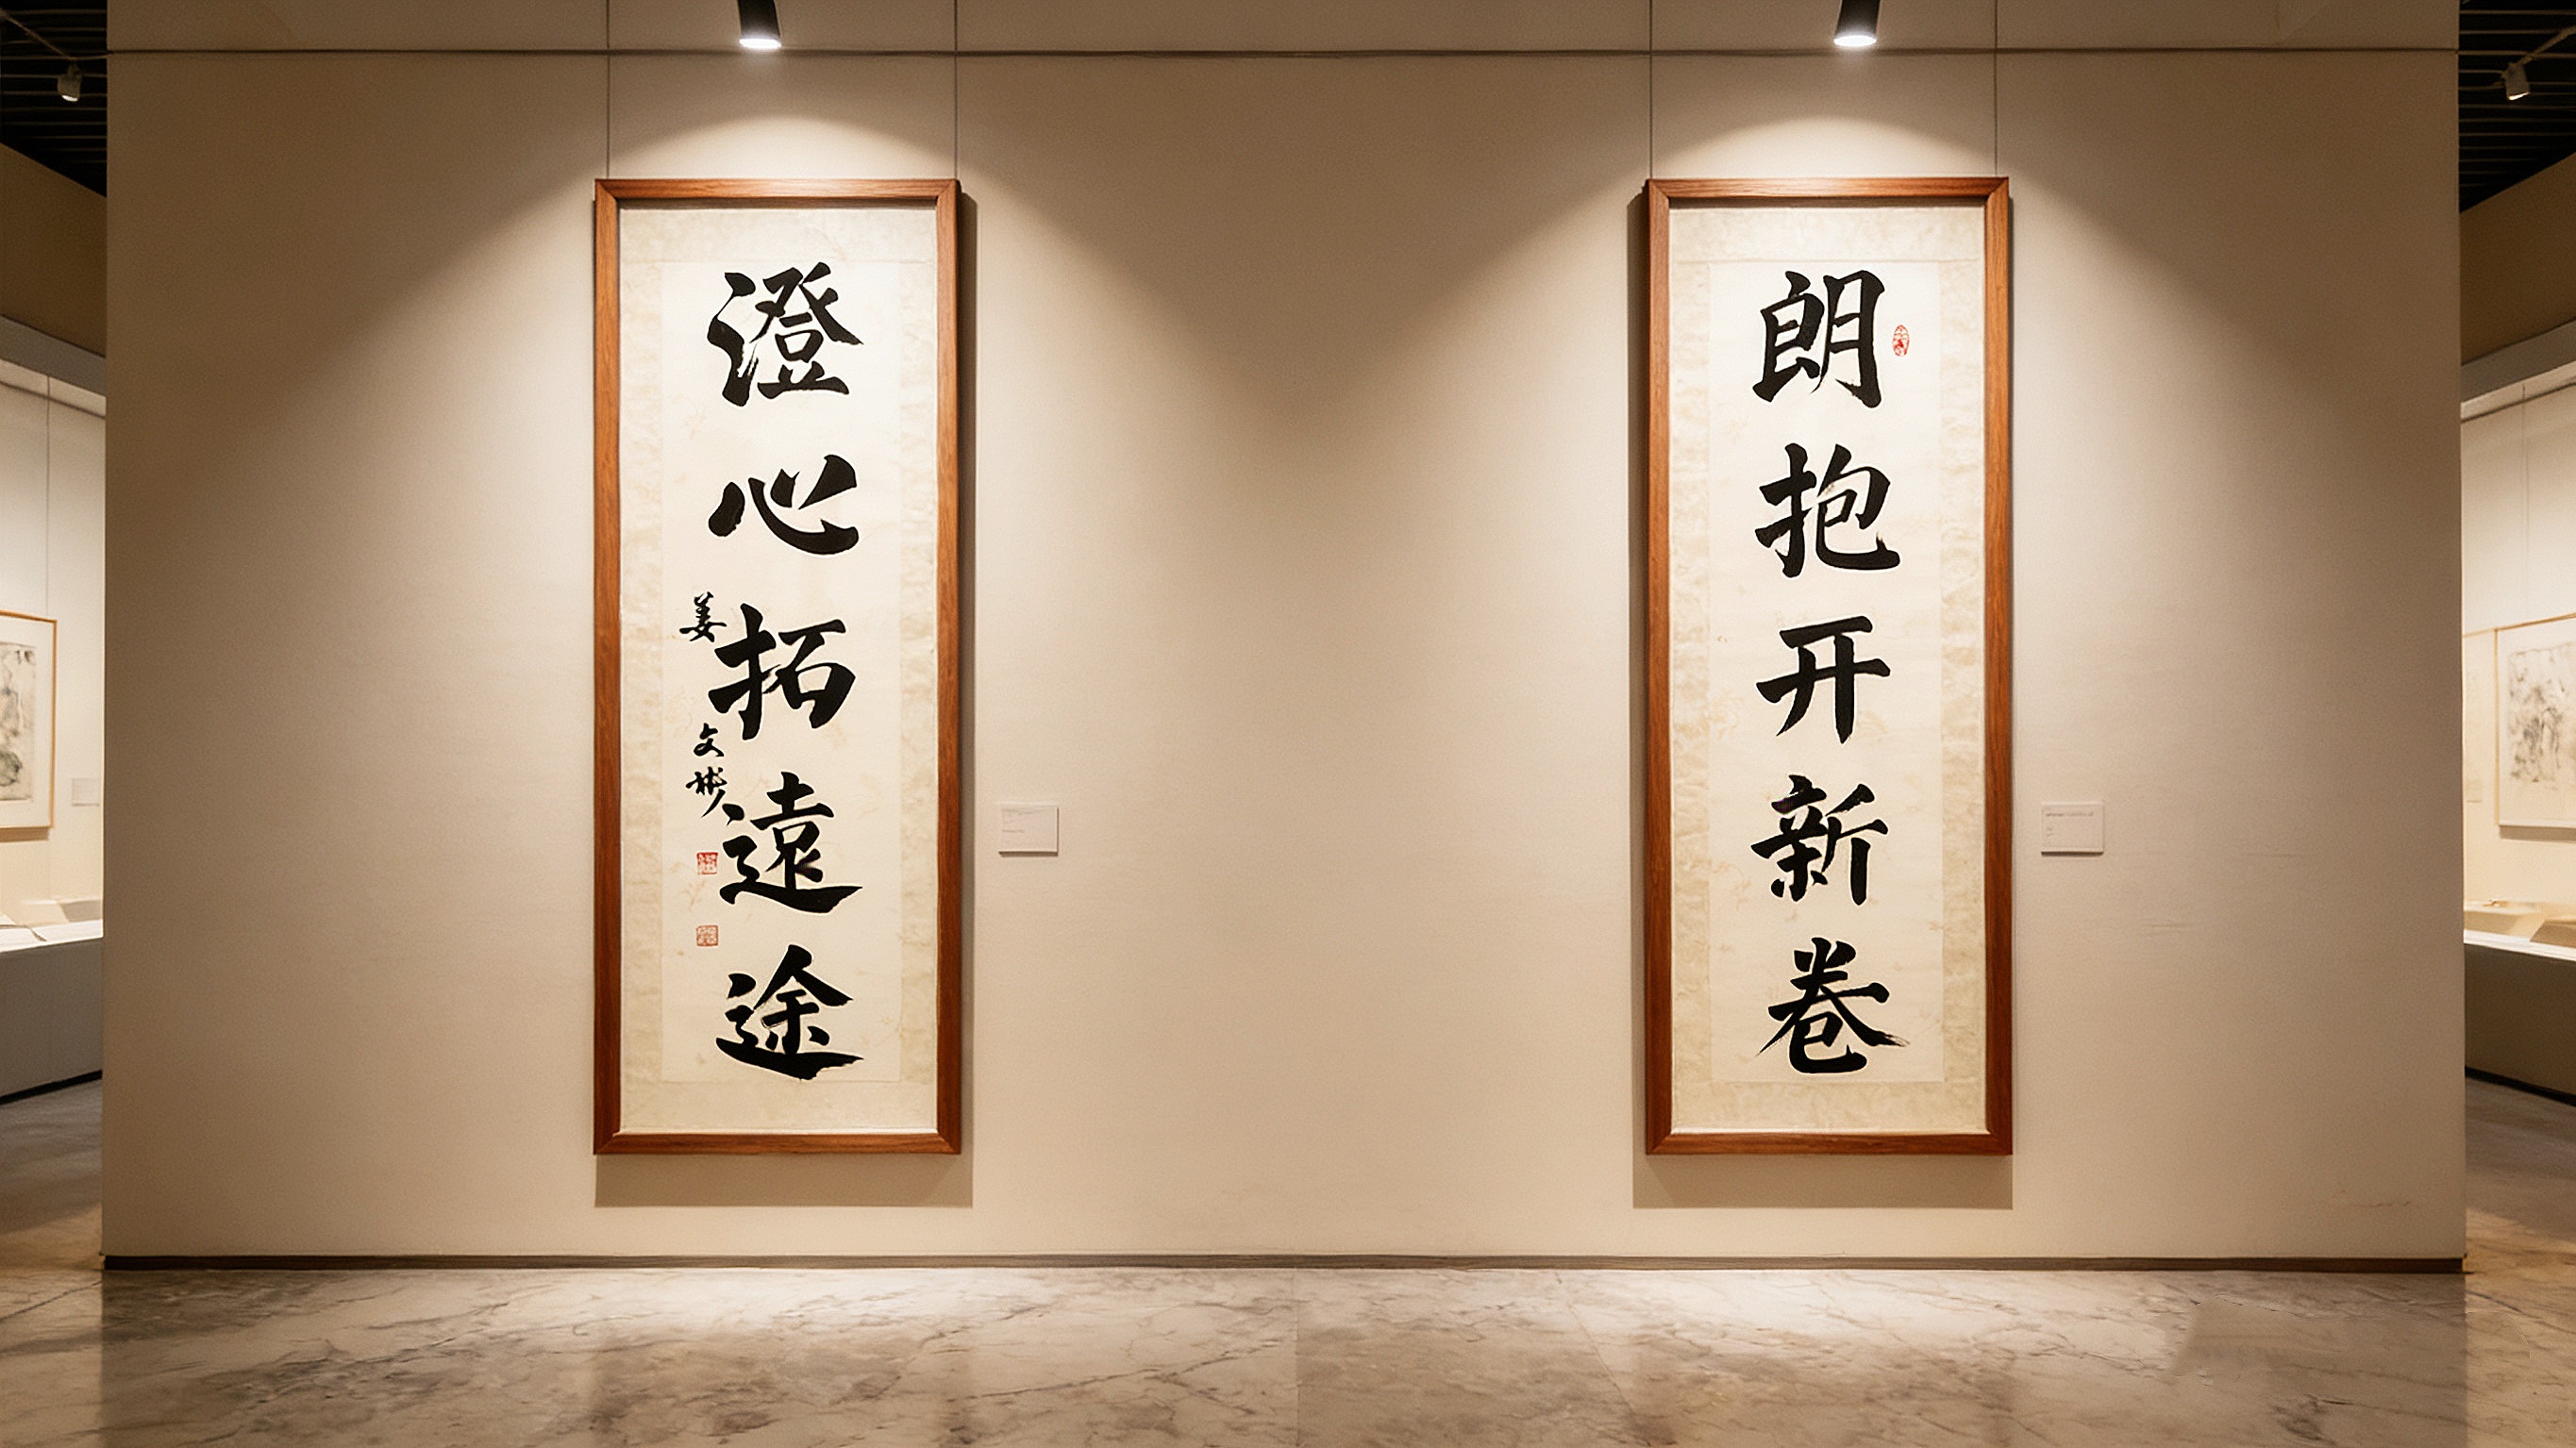 朗抱开新卷
澄心拓遠途
姜文彬